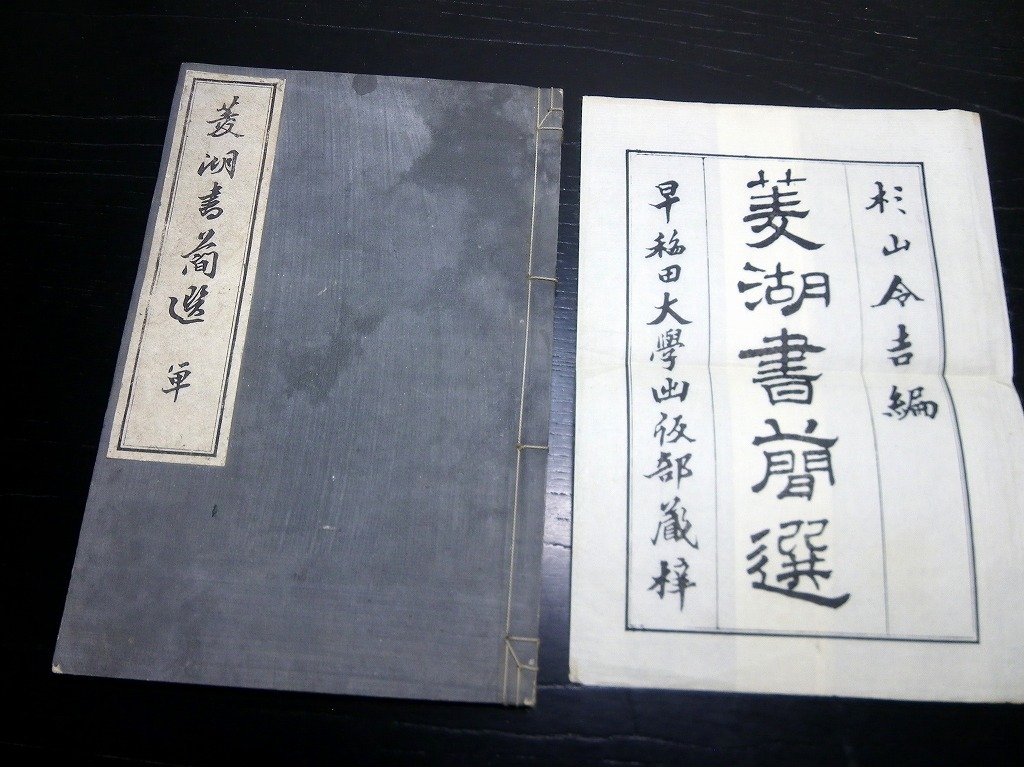 菱湖書簡選 單
杉山令吉編
菱湖書簡選
早稲田大學出版部蔵梓